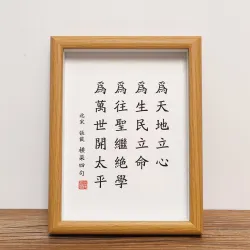 爲天地立心
爲生民立命
爲往聖繼絶學
爲萬世開太平
北宋 張載 橫渠四句